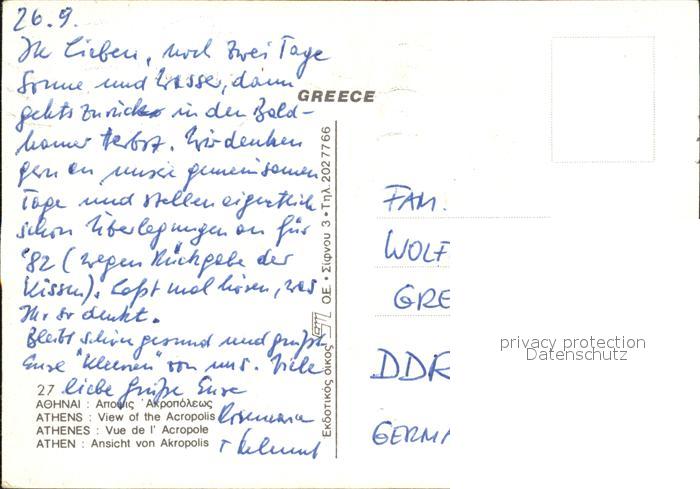 26.9.
Ihr Lieben, noch zwei Tage
Sonne und Wasser, dann
gehts zurück in den Bald-
hamer Herbst. Wir denken
gern an unsere gemeinsamen
Tage und stellen eigentlich
schon Überlegungen an für
'82 (wegen Rückgabe der
Kissen). Laßt mal hören, was
Ihr so denkt.
Bleibt schön gesund und grüßt
Eure "Kleinen" von uns. Viele
liebe Grüße Eure
Rosemarie
+ Helmut
27
ΑΘΗΝΑΙ : Άποψις Ἀκροπόλεως
ATHENS : View of the Acropolis
ATHENES : Vue de l' Acropole
ATHEN : Ansicht von Akropolis
GREECE
Εκδοτικός οίκος ΟΕ. • Σίφνου 3 • Τηλ. 2027766
FAM.
WOLF
GRE
DDR
GERMA
privacy protection
Datenschutz